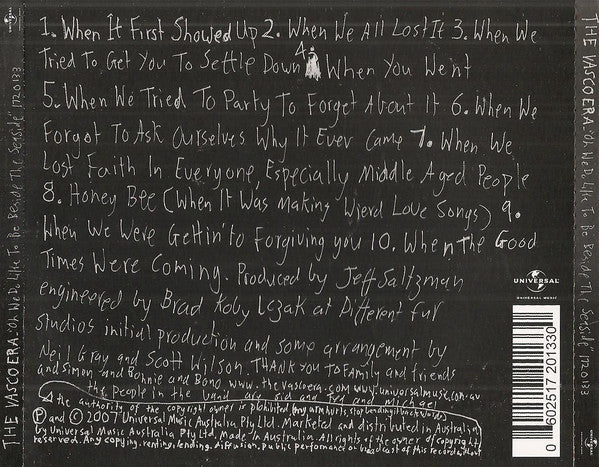 1. When It First Showed Up 2. When We All Lost It 3. When We
Tried To Get You To Settle Down 4. When You Went
5. When We Tried To Party To Forget About It 6. When We
Forgot To Ask Ourselves Why It Ever Came 7. When We
Lost Faith In Everyone, Especially Middle Aged People
8. Honey Bee (When It Was Making Wierd Love Songs) 9.
When We Were Gettin' to Forgiving you 10. When The Good
Times Were Coming. Produced by Jeff Saltzman
engineered by Brad Koby Lczak at Different fur
studios initial production and some arrangement by
Neil Gray and Scott Wilson. THANK you To family and friends
and Simon and Bonnie and Bono. www.thevascoera.com www.universalmusic.com.au
the people in the band are sid and ted and michael
the authority of the copyright owner is prohibited (my arm hurts, stop lending it backwards
℗ and © 2007 Universal Music Australia Pty Ltd. Marketed and distributed in Australia
by Universal Music Australia Pty Ltd. Made In Australia. All rights of the owner of copyright
reserved. Any copying, renting, lending, diffusion, public performance or broadcast of this record without
THE VASCO ERA "Oh We Do Like To Be Beside The Seaside" 1720133
THE VASCO ERA "Oh We Do Like To Be Beside The Seaside" 1720133
UNIVERSAL
UNIVERSAL MUSIC
0 602517 201330